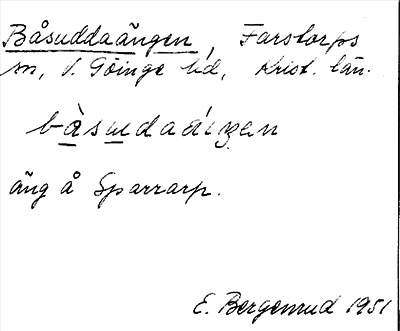 Båsuddaängen, Farstorps
sn, V. Göinge hd, Krist. län.
äng å Sparrarp.
E. Bergenrud 1951